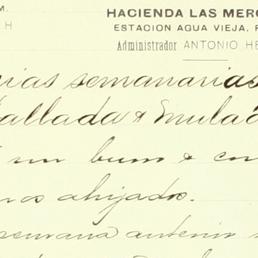 M. HACIENDA LAS MERC
H ESTACION AGUA VIEJA, F
Administrador ANTONIO HE
rias semanarias
allada & mulad
un buen & con
ros ahijados.
semana anterior